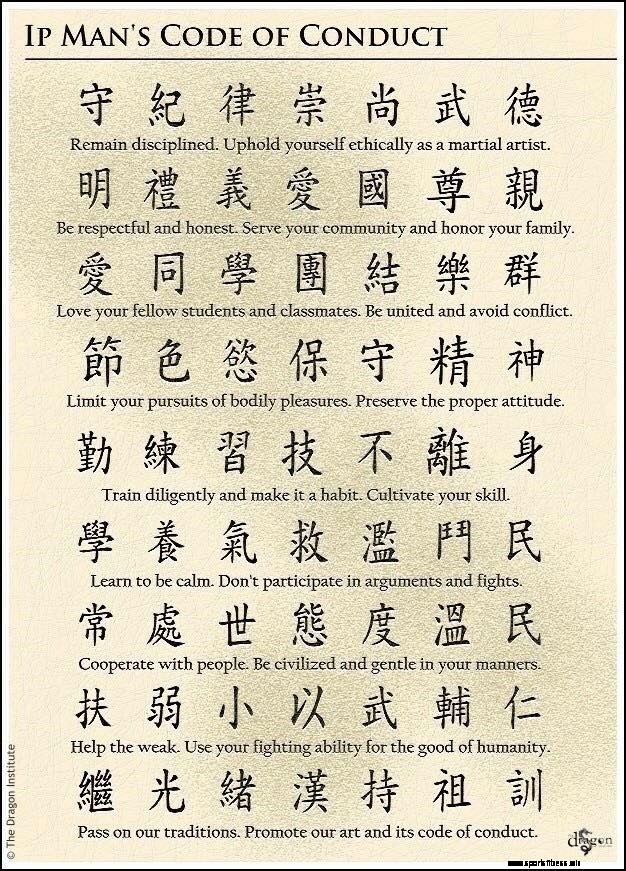 IP MAN'S CODE OF CONDUCT
守紀律崇尚武德
Remain disciplined. Uphold yourself ethically as a martial artist.
明禮義愛國尊親
Be respectful and honest. Serve your community and honor your family.
愛同學團結樂群
Love your fellow students and classmates. Be united and avoid conflict.
節色慾保守精神
Limit your pursuits of bodily pleasures. Preserve the proper attitude.
勤練習技不離身
Train diligently and make it a habit. Cultivate your skill.
學養氣救濫鬥民
Learn to be calm. Don't participate in arguments and fights.
常處世態度溫民
Cooperate with people. Be civilized and gentle in your manners.
扶弱小以武輔仁
Help the weak. Use your fighting ability for the good of humanity.
繼光緒漢持祖訓
Pass on our traditions. Promote our art and its code of conduct.
© The Dragon Institute
dragon